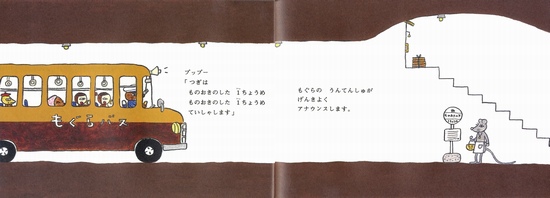 プップー
「つぎは
ものおきのした 1ちょうめ
ものおきのした 1ちょうめ
ていしゃします」
もぐらバス
もぐらの うんてんしゅが
げんきよく
アナウンスします。